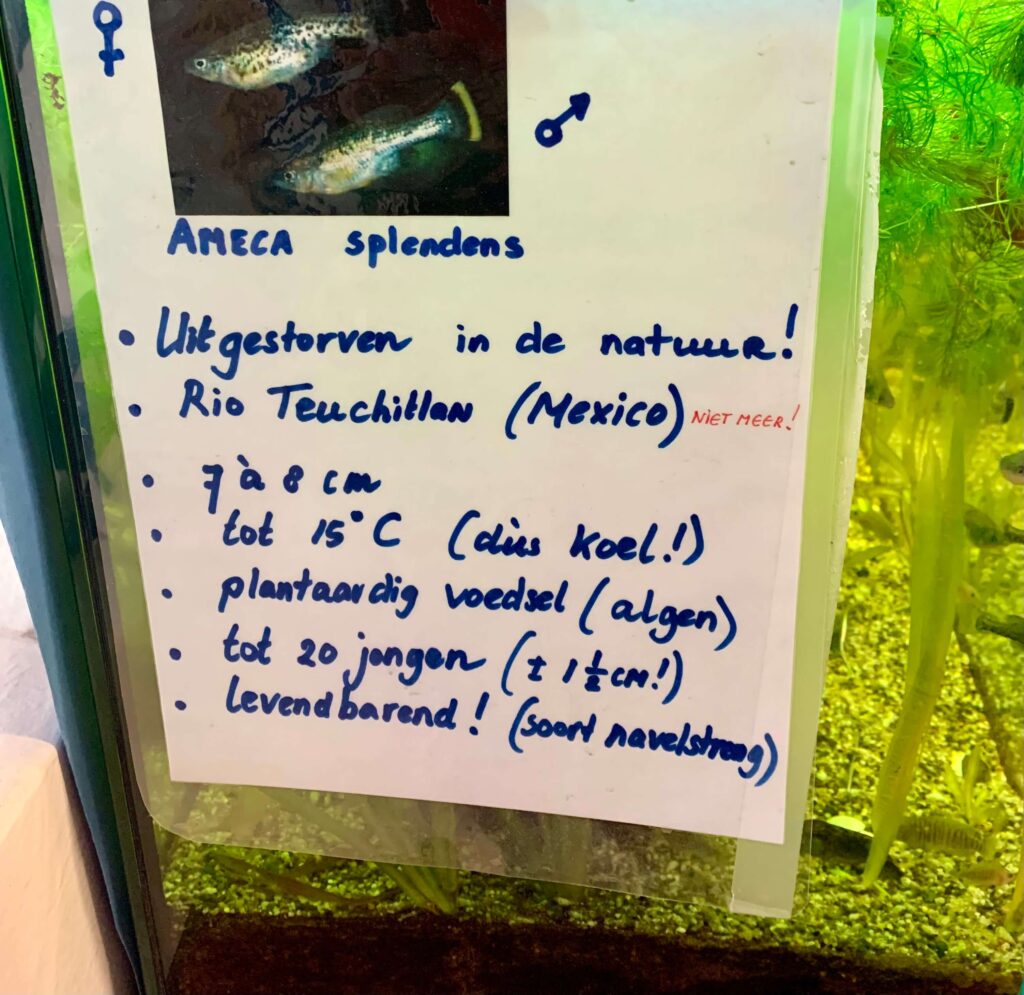 ♀
♂
AMECA splendens
• Uitgestorven in de natuur!
• Rio Teuchitlan (Mexico) NIET MEER!
• 7 à 8 cm
• tot 15°C (dus koel!)
• plantaardig voedsel (algen)
• tot 20 jongen (± 1½ cm!)
• levendbarend! (soort navelstreng)